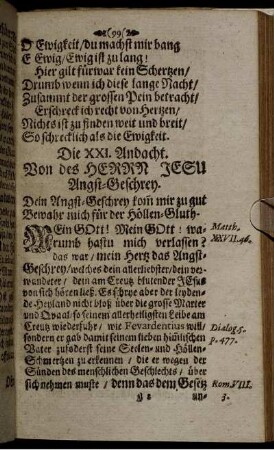 (99)
O Ewigkeit/ du machst mir bang
E Ewig/ Ewig ist zu lang!
Hier gilt fürwar kein Schertzen/
Drumb wenn ich diese lange Nacht/
Zusammt der grossen Pein betracht/
Erschreck ich recht von Hertzen/
Nichts ist zu finden weit und breit/
So schrecklich als die Ewigkeit.
Die XXI. Andacht.
Von des HERRN JESU
Angst-Geschrey.
Dein Angst-Geschrey kom̃ mir zu gut
Bewahr mich für der Höllen-Gluth.
MEin GOtt! Mein GOtt! wa-
rumb hastu mich verlassen?
das war/ mein Hertz das Angst-
Geschrey/ welches dein allerliebster/ dein ver-
wandeter/ dein am Creutz blutender JEsus
von sich hören ließ. Es schrye aber der leyden-
de Heyland nicht bloß über die grosse Marter
und Quaal/ so seinem allerheiligsten Leibe am
Creutz wiederfuhr/ wie Fevardentius will/
sondern er gab damit seinem lieben himlischen
Vater zuforderst seine Seelen- und Höllen-
Schmertzen zu erkennen/ die er wegen der
Sünden des menschlichen Geschlechts/ über
sich nehmen muste/ denn das dem Gesetz
un-
Matth.
XXVII.46.
Dialog.5.
p.477.
Rom.VIII.
3.